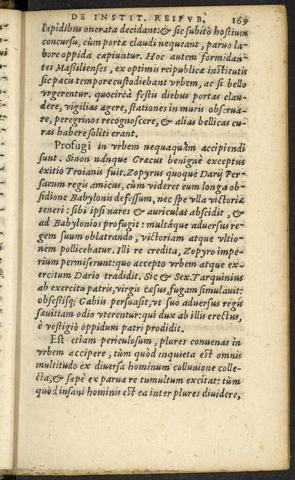 DE INSTIT. REIPVB. 169
lapidibus onerata decidant: & sic subitò hostium
concursu, cùm portæ claudi nequeant, paruo la-
bore oppida capiuntur. Hoc autem formidan-
tes Massilienses, ex optimis reipublicæ institutis
sic pacis tempore custodiebant vrbem, ac si bello
vrgerentur. quocircà festis diebus portas clau-
dere, vigilias agere, stationes in muris obserua-
re, peregrinos recognoscere, & alias bellicas cu-
ras habere soliti erant.
Profugi in vrbem nequaquàm accipiendi
sunt. Sinon nánque Græcus benignè exceptus
exitio Troianis fuit. Zopyrus quoque Darij Per-
sarum regis amicus, cùm videret eum longa ob-
sidione Babylonis defessum, nec spe vlla victoriæ
teneri: sibi ipsi nares & auriculas abscidit, &
ad Babylonios profugit: multáque aduersus re-
gem suum oblatrando, victoriam atque vltio-
nem pollicebatur. Illi re credita, Zopyro impe-
rium permiserunt: quo accepto vrbem atque ex-
ercitum Dario tradidit. Sic & Sex. Tarquinius
ab exercitu patris, virgis cæsus, fugam simulauit:
obsessisq; Gabiis persuasit, vt suo aduersus regis
sæuitiam odio vterentur: qui dux ab illis erectus,
è vestigiò oppidum patri prodidit.
Est etiam periculosum, plures conuenas in
vrbem accipere, tùm quòd inquieta est omnis
multitudo ex diuersa hominum colluuione colle-
cta, & sæpè ex parua re tumultum excitat: tùm
quòd insani hominis est ea inter plures diuidere,